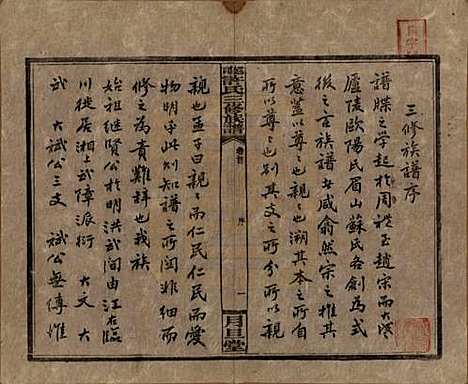 三修族譜序
譜牒之學起於周禮至趙宋而大盛
廬陵歐陽氏眉山蘇氏各創為式
後之言族譜者咸俞然宗之推其
意蓋以尊尊也親親也溯其本之所自
所以尊尊也别其支之所分所以親
許氏三修族譜
卷首
序
一
月旦堂
親也孟子曰親親而仁民仁民而愛
物明乎此则知譜之所関非细而
修之為責難辭也我族
始祖继賢公於明洪武间由江右臨
川徙居湘上武障派衍 大文 大
武 大斌公三文 斌公無傳惟